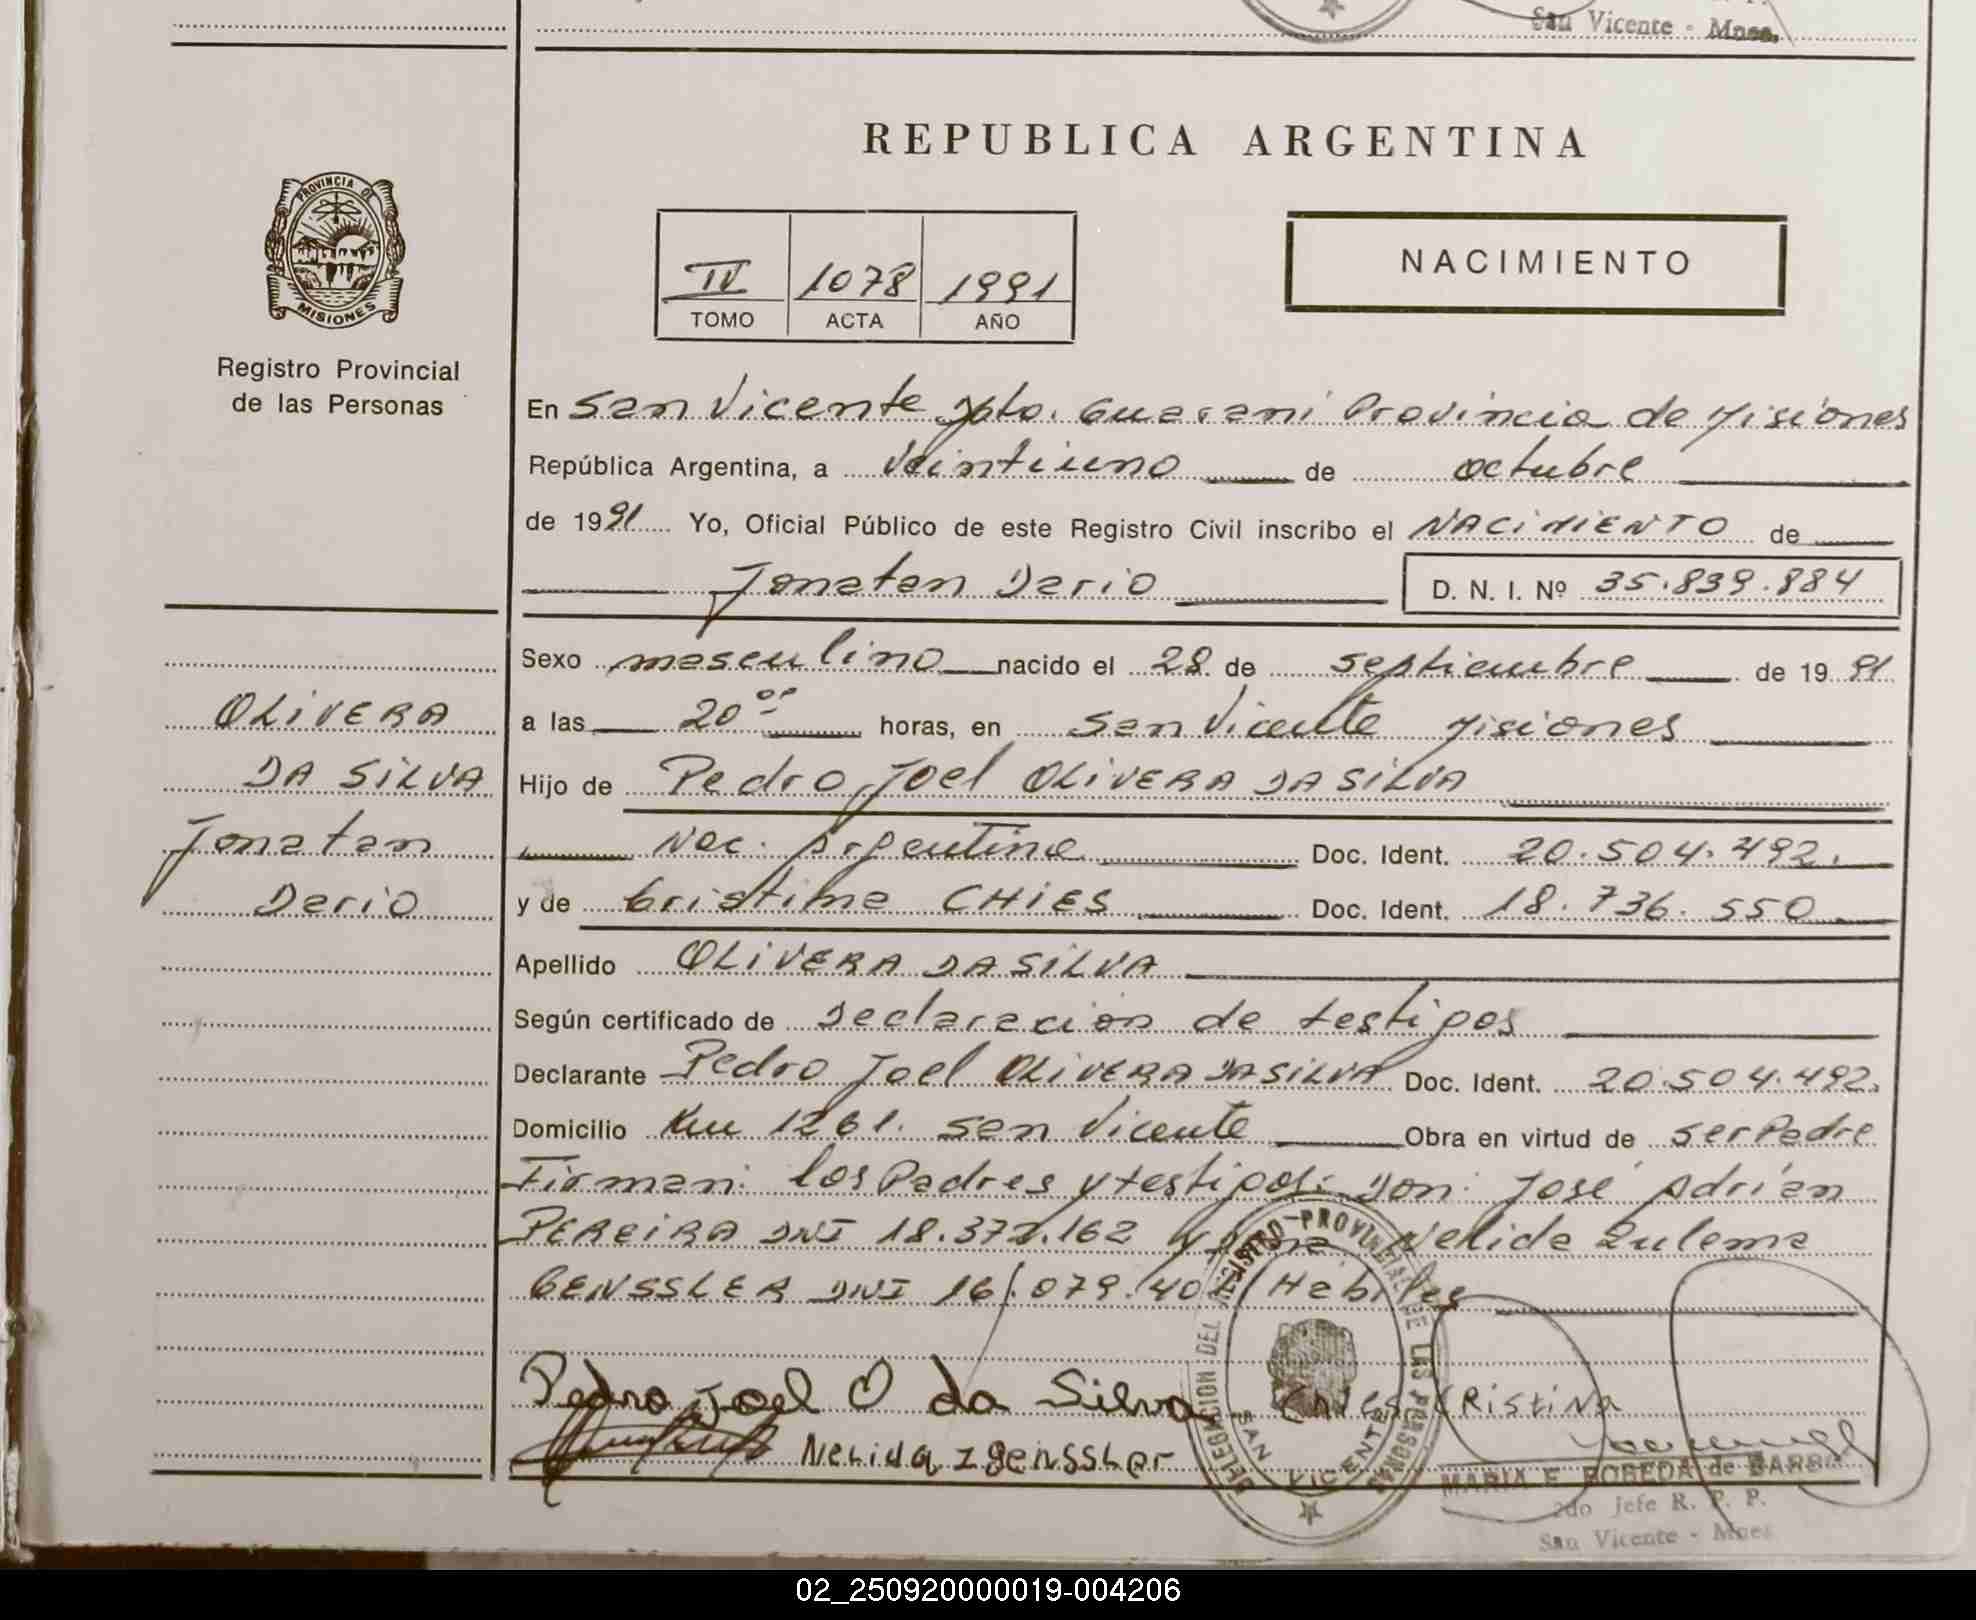 San Vicente - Mnes.
REPUBLICA ARGENTINA
PROVINCIA DE
MISIONES
Registro Provincial
de las Personas
IV 1078 1991
TOMO ACTA AÑO
NACIMIENTO
En San Vicente Dpto. Guarani Provincia de Misiones
República Argentina, a veintiuno de octubre
de 1991 Yo, Oficial Público de este Registro Civil inscribo el NACIMIENTO de
Jonatan Dario D. N. I. Nº 35.839.884
Sexo masculino nacido el 28 de septiembre de 1991
a las 20 00 horas, en San Vicente Misiones
Hijo de Pedro Joel OLIVERA DA SILVA
Nac. Argentina Doc. Ident. 20.504.492.
y de Cristina CHIES Doc. Ident. 18.736.550
Apellido OLIVERA DA SILVA
Según certificado de Declaración de testigos
Declarante Pedro Joel OLIVERA DA SILVA Doc. Ident. 20.504.492.
Domicilio Km 1261. San Vicente Obra en virtud de ser Padre
Firman: los Padres y testigos: Don: José Adrián
PEREIRA DNI 18.372.162 y Doña Nelida Zulema
GENSSLER DNI 16.079.401 Habiles
OLIVERA
DA SILVA
Jonatan
Dario
Pedro Joel O da Silva Chies CRistina
NeLida Z genssLer
DELEGACION DEL REGISTRO PROVINCIAL DE LAS PERSONAS
SAN VICENTE
MARIA E. de
2do Jefe R. P. P.
San Vicente - Mnes
02_250920000019-004206